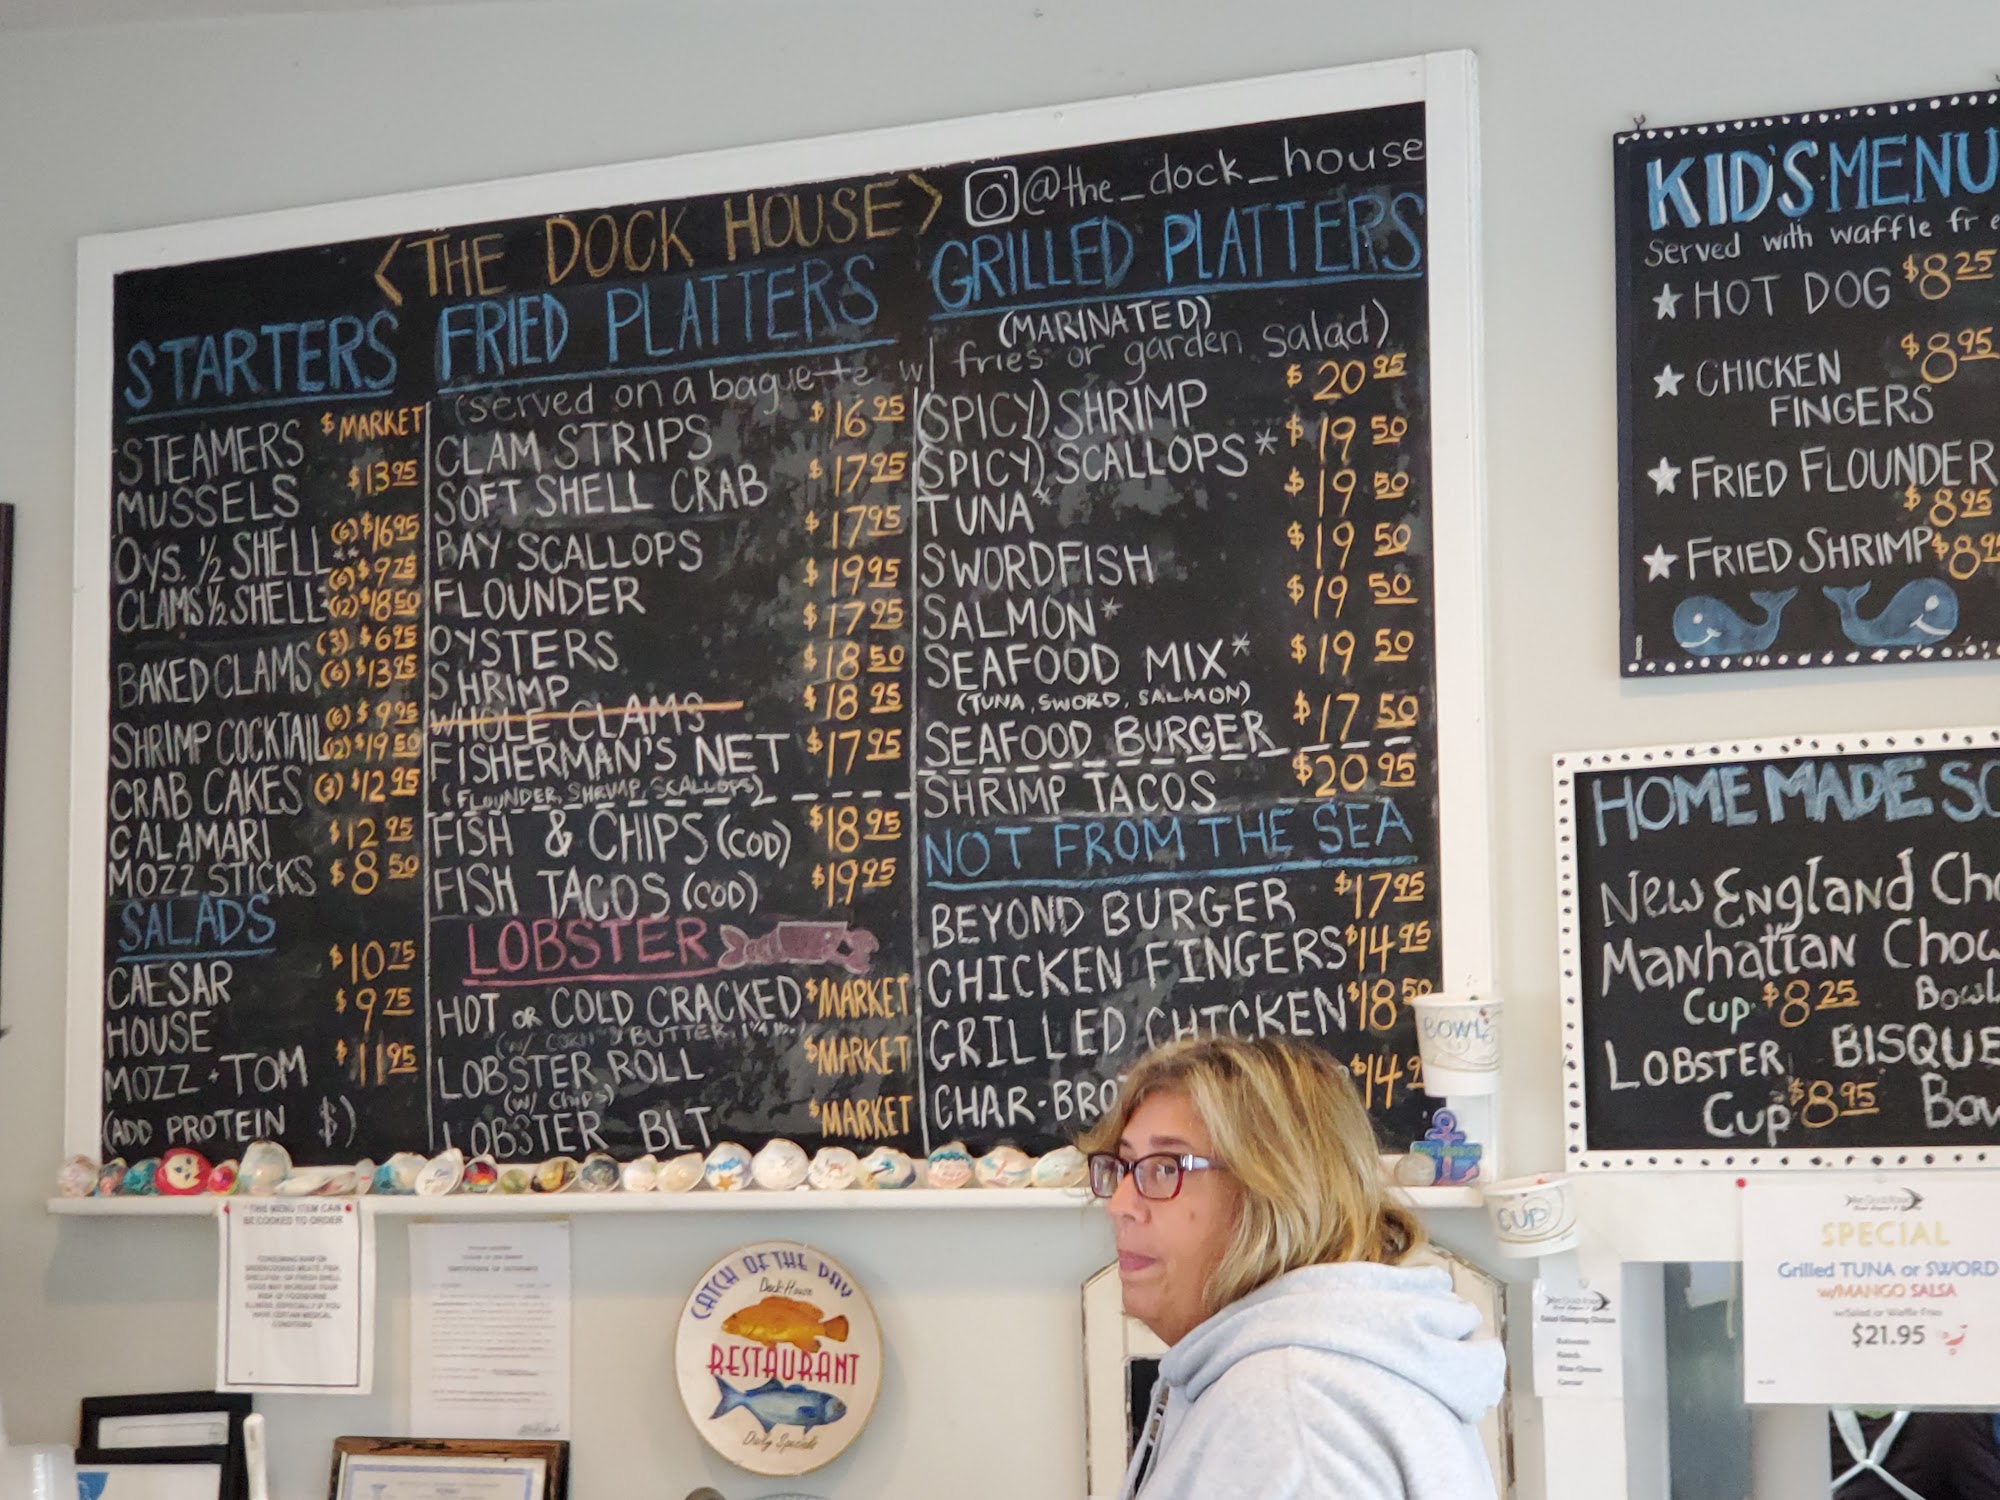 <THE DOCK HOUSE> @the_dock_house
STARTERS
STEAMERS $MARKET
MUSSELS $13.95
OYS. ½ SHELL** (6) $16.95
CLAMS ½ SHELL* (6) $9.75
(12) $18.50
BAKED CLAMS (3) $6.95
(6) $13.25
SHRIMP COCKTAIL (6) $9.95
(12) $19.50
CRAB CAKES (3) $12.95
CALAMARI $12.95
MOZZ STICKS $8.50
SALADS
CAESAR $10.75
HOUSE $9.75
MOZZ + TOM $11.95
(ADD PROTEIN $)
FRIED PLATTERS
(served on a baguette w/ fries or garden salad)
CLAM STRIPS $16.95
SOFT SHELL CRAB $17.25
BAY SCALLOPS $17.95
FLOUNDER $19.95
OYSTERS $17.95
SHRIMP $18.50
WHOLE CLAMS $18.95
FISHERMAN'S NET $17.95
(FLOUNDER, SHRIMP, SCALLOPS)
FISH & CHIPS (COD) $18.95
FISH TACOS (COD) $19.95
LOBSTER
HOT OR COLD CRACKED $MARKET
(W/ CORN & BUTTER, 1¼ lb.)
LOBSTER ROLL $MARKET
(W/ Chips)
LOBSTER BLT $MARKET
GRILLED PLATTERS
(MARINATED)
(SPICY) SHRIMP $20.95
(SPICY) SCALLOPS* $19.50
TUNA* $19.50
SWORDFISH $19.50
SALMON* $19.50
SEAFOOD MIX* $19.50
(TUNA, SWORD, SALMON)
SEAFOOD BURGER $17.50
SHRIMP TACOS $20.95
NOT FROM THE SEA
BEYOND BURGER $17.95
CHICKEN FINGERS $14.95
GRILLED CHICKEN $18.50
CHAR-BRO $14.9
KID'S MENU
Served with waffle fr e
HOT DOG $8.25
CHICKEN FINGERS $8.95
FRIED FLOUNDER
$8.95
FRIED SHRIMP $8.95
HOMEMADE SO
NEW ENGLAND Cho
MANHATTAN Chow
Cup $8.25 Bowl
LOBSTER BISQUE
Cup $8.95 Bow
BOWL
CUP
*THIS MENU ITEM CAN
BE COOKED TO ORDER
CONSUMING RAW OR
UNDERCOOKED MEATS, FISH,
SHELLFISH, OR FRESH SHELL
EGGS MAY INCREASE YOUR
RISK OF FOODBORNE
ILLNESS, ESPECIALLY IF YOU
HAVE CERTAIN MEDICAL
CONDITIONS
CATCH OF THE DAY
Dock House
RESTAURANT
Daily Specials
SPECIAL
Grilled TUNA or SWORD
w/MANGO SALSA
w/Salad or Waffle Fries
$21.95
Salad Dressing Choices
Balsamic
Ranch
Blue Cheese
Caesar